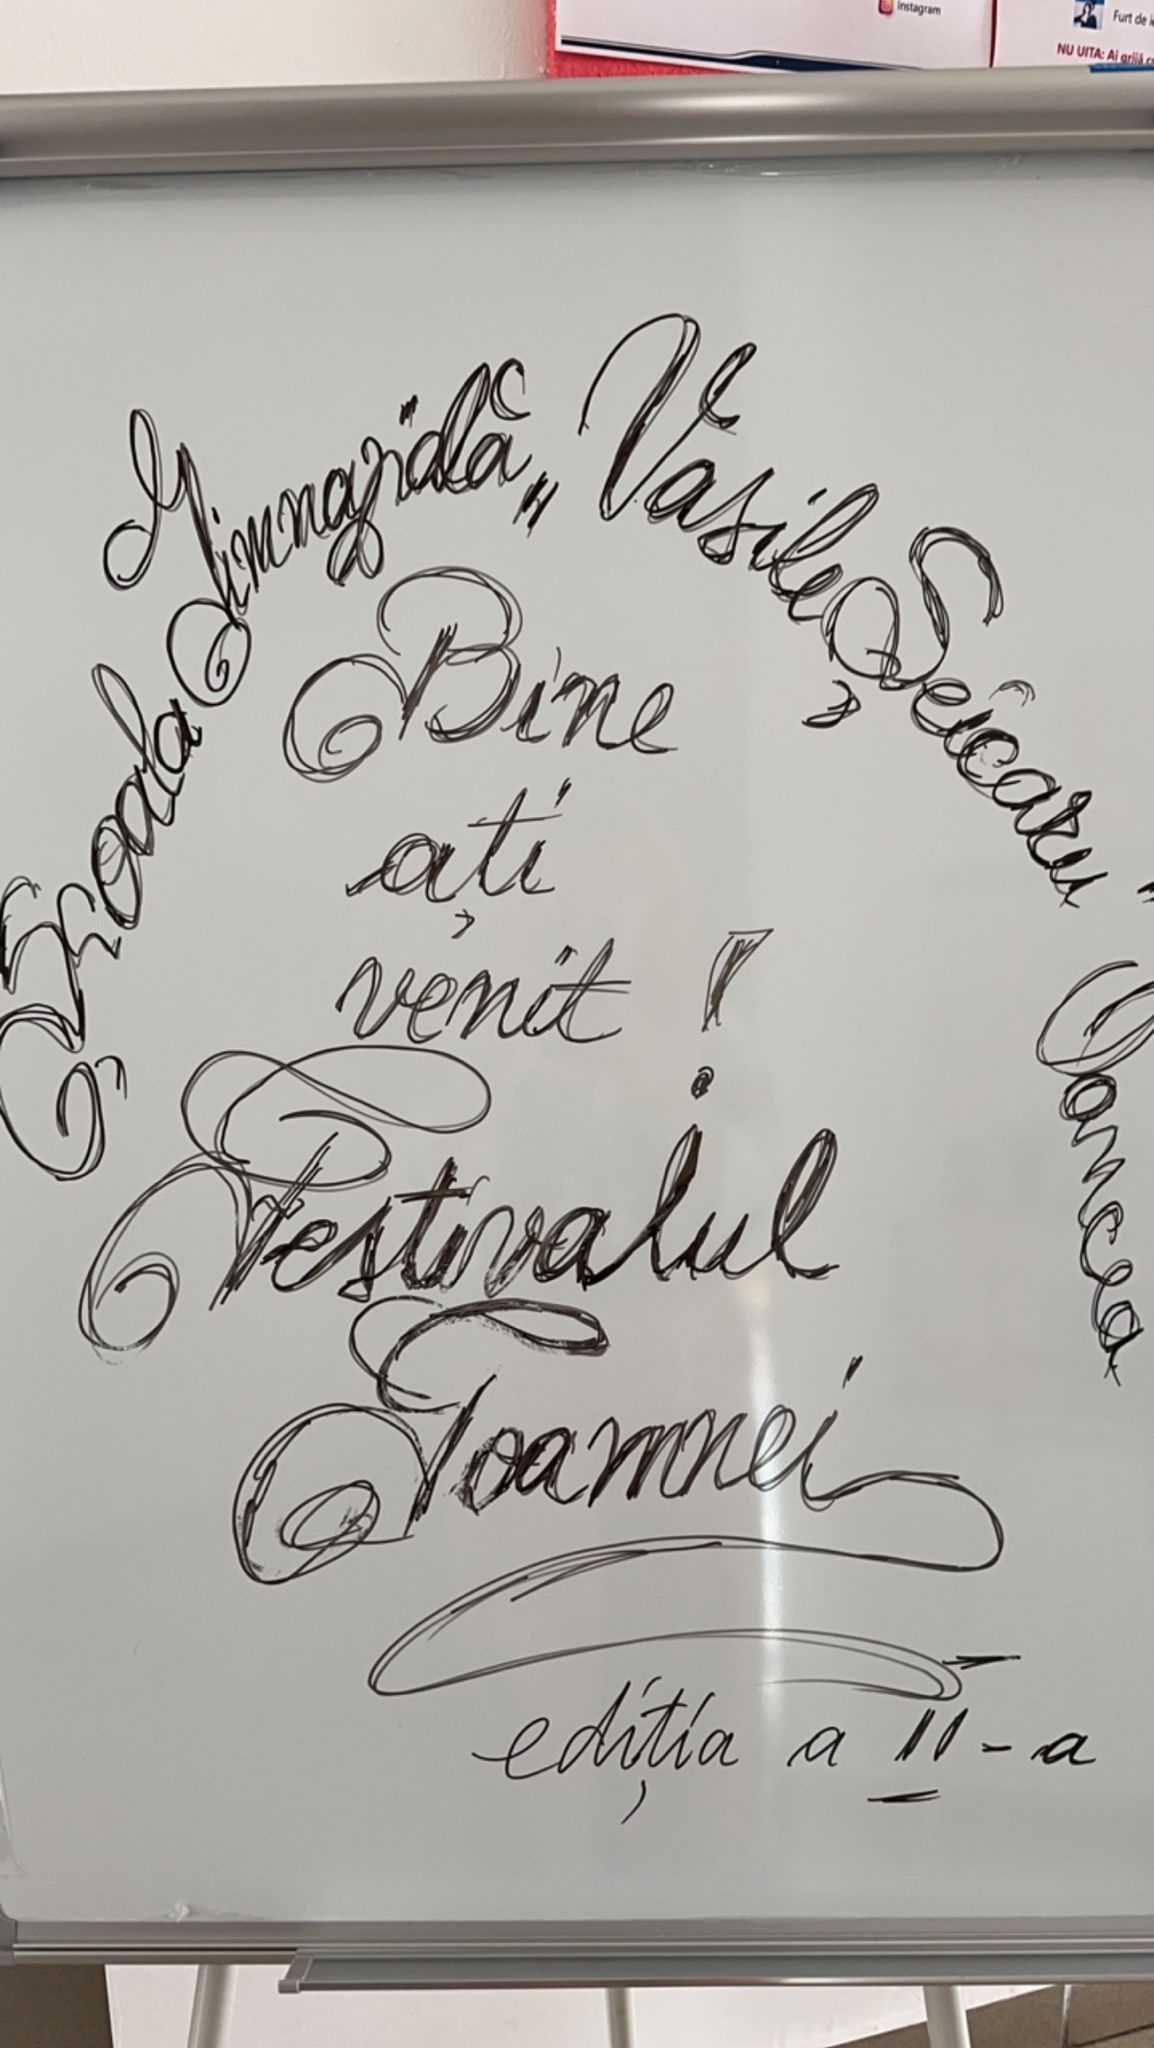 Instagram
Furt de i
NU UITA: Ai grijă c
Școala Gimnazială „Vasile Șeicaru" Oancea
Bine
ați
venit !
Festivalul
Toamnei
ediția a II-a